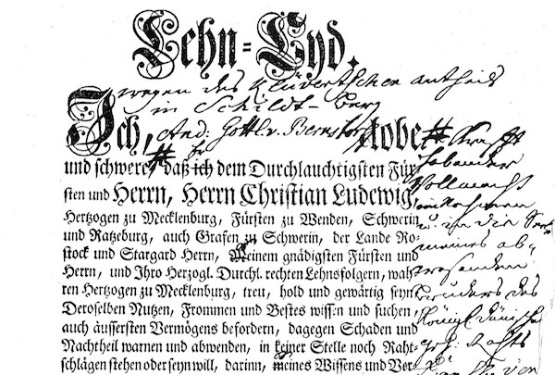 Lehn-Eyd.
wegen des Klüverschen antheils
in Schildt-berg
Ich, And: Gottl. v. Bernstorf Lobe
und schwere, daß ich dem Durchlauchtigsten Für-
sten und Herrn, Herrn Christian Ludewig
Hertzogen zu Mecklenburg, Fürsten zu Wenden, Schwerin
und Ratzeburg, auch Grafen zu Schwerin, der Lande Ro-
stock und Stargard Herrn, Meinem gnädigsten Fürsten und
Herrn, und Ihro Herzogl. Durchl. rechten Lehnsfolgern, wah-
ren Hertzogen zu Mecklenburg, treu, hold und gewärtig seyn
Deroselben Nutzen, Frommen und Bestes wissen und suchen,
auch äussersten Vermögens befordern, dagegen Schaden und
Nachtheil warnen und abwenden, in keiner Stelle noch Raht-
schlägen stehen oder seyn will, darinn, meines Wissens und Ver-
Krafft
habender
Vollmacht
u. in die Seele
meines ab-
wesenden
Bruders des
Königl. Dänischen